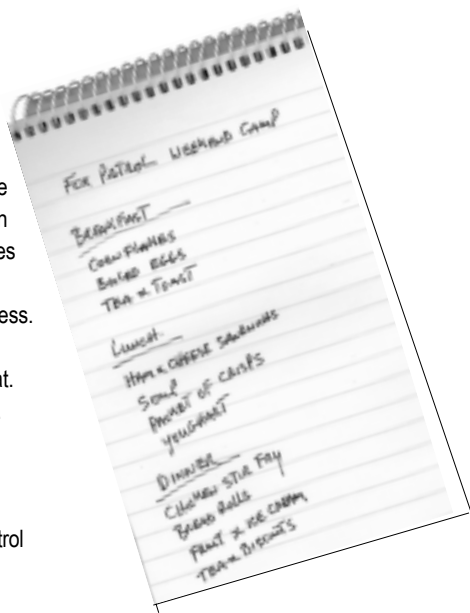 e
n
es
ess.
at.
trol
FOX PATROL WEEKEND CAMP
BREAKFAST
CORNFLAKES
EGGS
TEA & TOAST
LUNCH
HAM & CHEESE
SOUP
PACKET OF CRISPS
YOUGHART
DINNER
CHICKEN STIR FRY
BREAD ROLLS
FRUIT & ICE CREAM
TEA & BISCUITS